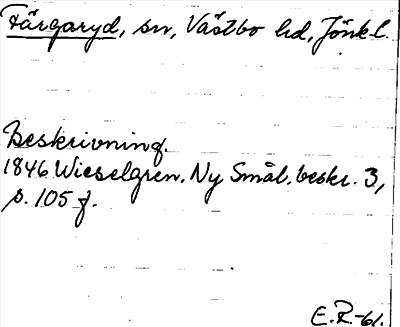 Färgaryd, sn, Västbo hd, Jönk.l.
Beskrivning.
1846 Wieselgren. Ny Smål. beskr. 3,
s. 105 f.
E.R-61.